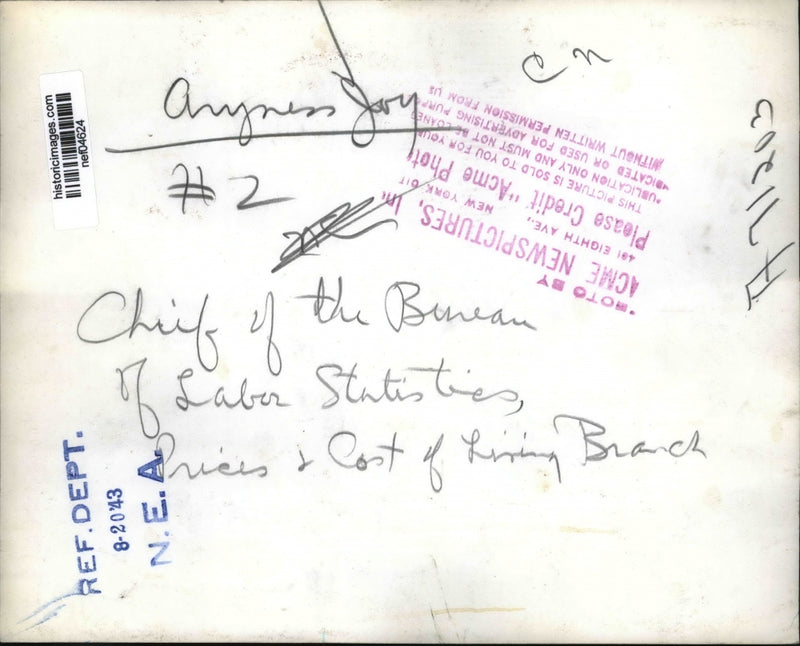 C N
Aryness Joy
#2
Chief of the Bureau
of Labor Statistics,
Prices & Cost of Living Branch
historicimages.com
nef04624
PHOTO BY
ACME NEWSPICTURES, Inc.
461 EIGHTH AVE., NEW YORK CIT
Please Credit "Acme Phot
THIS PICTURE IS SOLD TO YOU FOR YOUR
PUBLICATION ONLY AND MUST NOT BE LOANED
DICATED OR USED FOR ADVERTISING PURP
WITHOUT WRITTEN PERMISSION FROM US
REF. DEPT.
8-20 43
N.E.A.